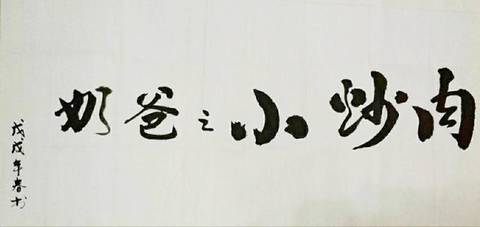 奶爸之小炒肉
戊戌年春